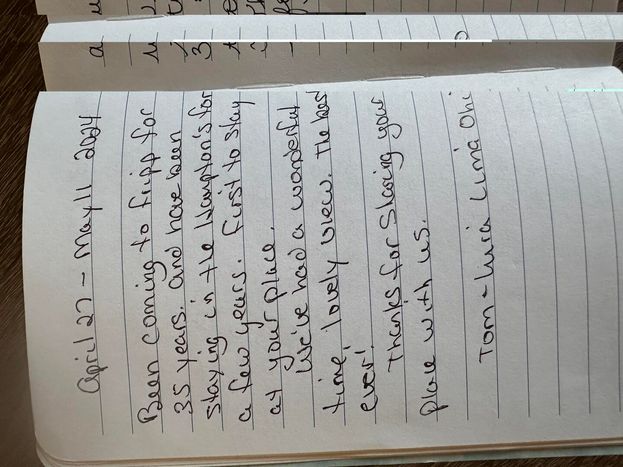 April 27 - May 11 2024
Been coming to Fripp for
35 years. and have been
staying in the Hampton's for
a few years. First to stay
at your place.
We've had a wonderful
time, lovely view. The best
ever!
Thanks for Sharing your
place with us.
Tom - Luria Lima Ohi